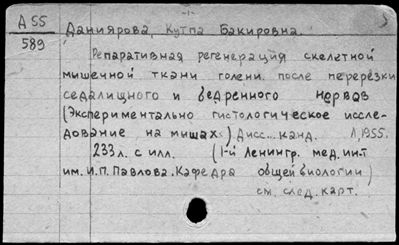 Д 55
589
Даниярова, Кутпа Бакировна.
Репаративная регенерация скелетной
мышечной ткани голени после перерезки
седалищного и бедренного нервов
(Экспериментально гистологическое иссле-
дование на мышах) Дисс... канд. Л, 1955.
233 л. с илл. (1-й Ленингр. мед. ин-т
им. И.П. Павлова. Кафедра общей биологии)
см. след. карт.